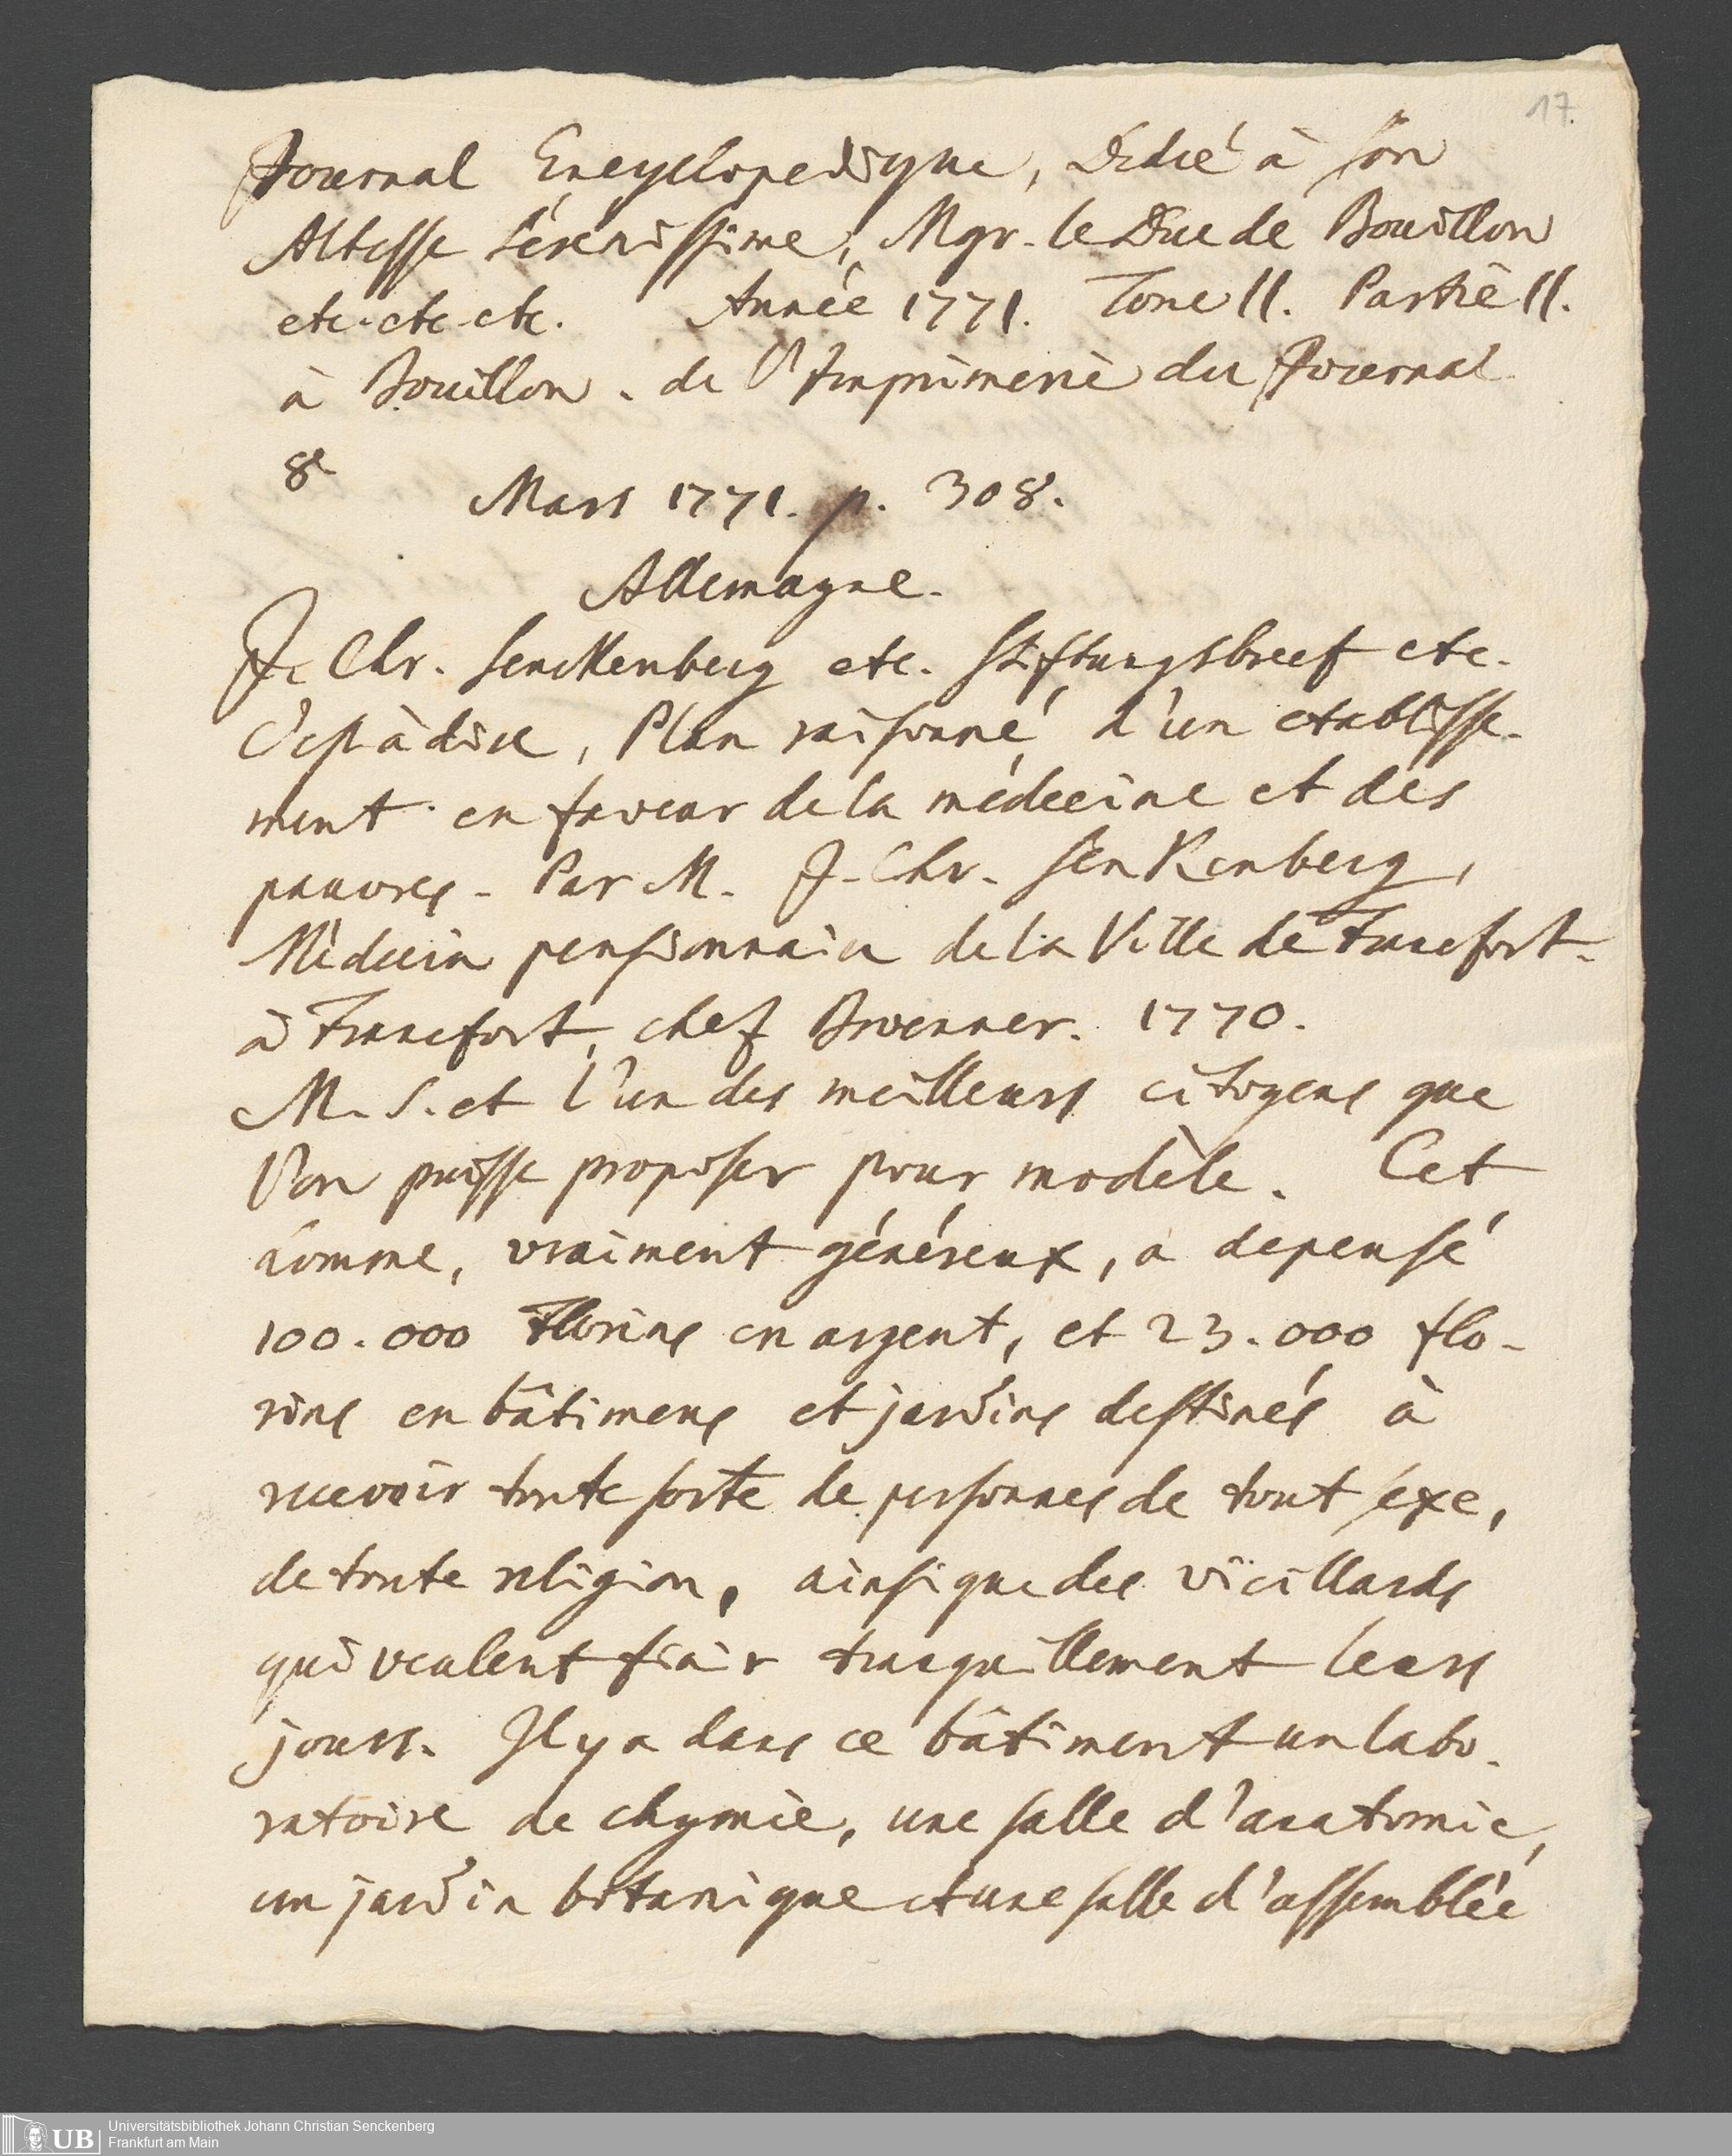 17.
Journal Encyclopedique, Dédié à son
Altesse Sérénissime, Mgr. le Duc de Bouillon
etc. etc. etc. Année 1771. Tome II. Partie II.
à Bouillon. de l'Imprimerie du Journal
8º
Mars 1771. p. 308.
Allemagne.
J. Chr. Senckenberg etc. Stiftungsbreef etc.
C'est à dire, Plan raisonné d'un etablisse-
ment en faveur de la médecine et des
pauvres. Par M. J. Chr. SenKenberg,
Médecin pensionnaire de la Ville de Francfort.
à Francfort, chez Broenner. 1770.
M. S. et l'un des meilleurs citoyens que
l'on puisse proposer pour modèle. Cet
homme, vraiment généreux, a depensé
100.000 Florins en argent, et 23.000 flo-
rins en bâtimens et jardins destinés à
recevoir toute sorte de personnes de tout sexe,
de toute religion, ainsi que des vieillards
qui veulent finir tranquillement leurs
jours. Il y a dans ce bâtiment un labo-
ratoire de chymie, une salle d'anatomie,
un jardin botanique et une salle d'assemblée
UB
Universitätsbibliothek Johann Christian Senckenberg
Frankfurt am Main